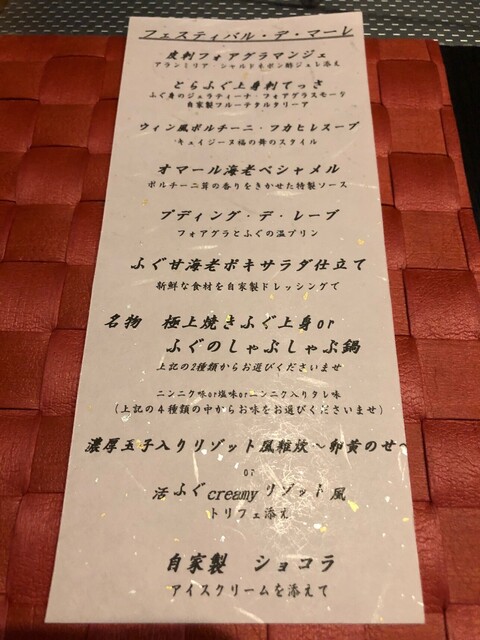 フェスティバル・デ・マーレ
皮刺フォアグラマンジェ
アランミリア・シャルドネポン酢ジュレ添え
とらふぐ上身刺てっさ
ふぐ身のジェラティーナ・フォアグラスモーク
自家製フルーテタルタリーア
ウィン風ポルチーニ・フカヒレスープ
キュイジーヌ福の舞のスタイル
オマール海老ベシャメル
ポルチーニ茸の香りをきかせた特製ソース
プディング・デ・レーブ
フォアグラとふぐの温プリン
ふぐ甘海老ポキサラダ仕立て
新鮮な食材を自家製ドレッシングで
名物 極上焼きふぐ上身or
ふぐのしゃぶしゃぶ鍋
上記の2種類からお選びくださいませ
ニンニク味or塩味orニンニク入りタレ味
(上記の４種類の中からお味をお選びくださいませ)
濃厚玉子入りリゾット風雑炊～卵黄のせ～
or
活ふぐcreamyリゾット風
トリフェ添え
自家製 ショコラ
アイスクリームを添えて